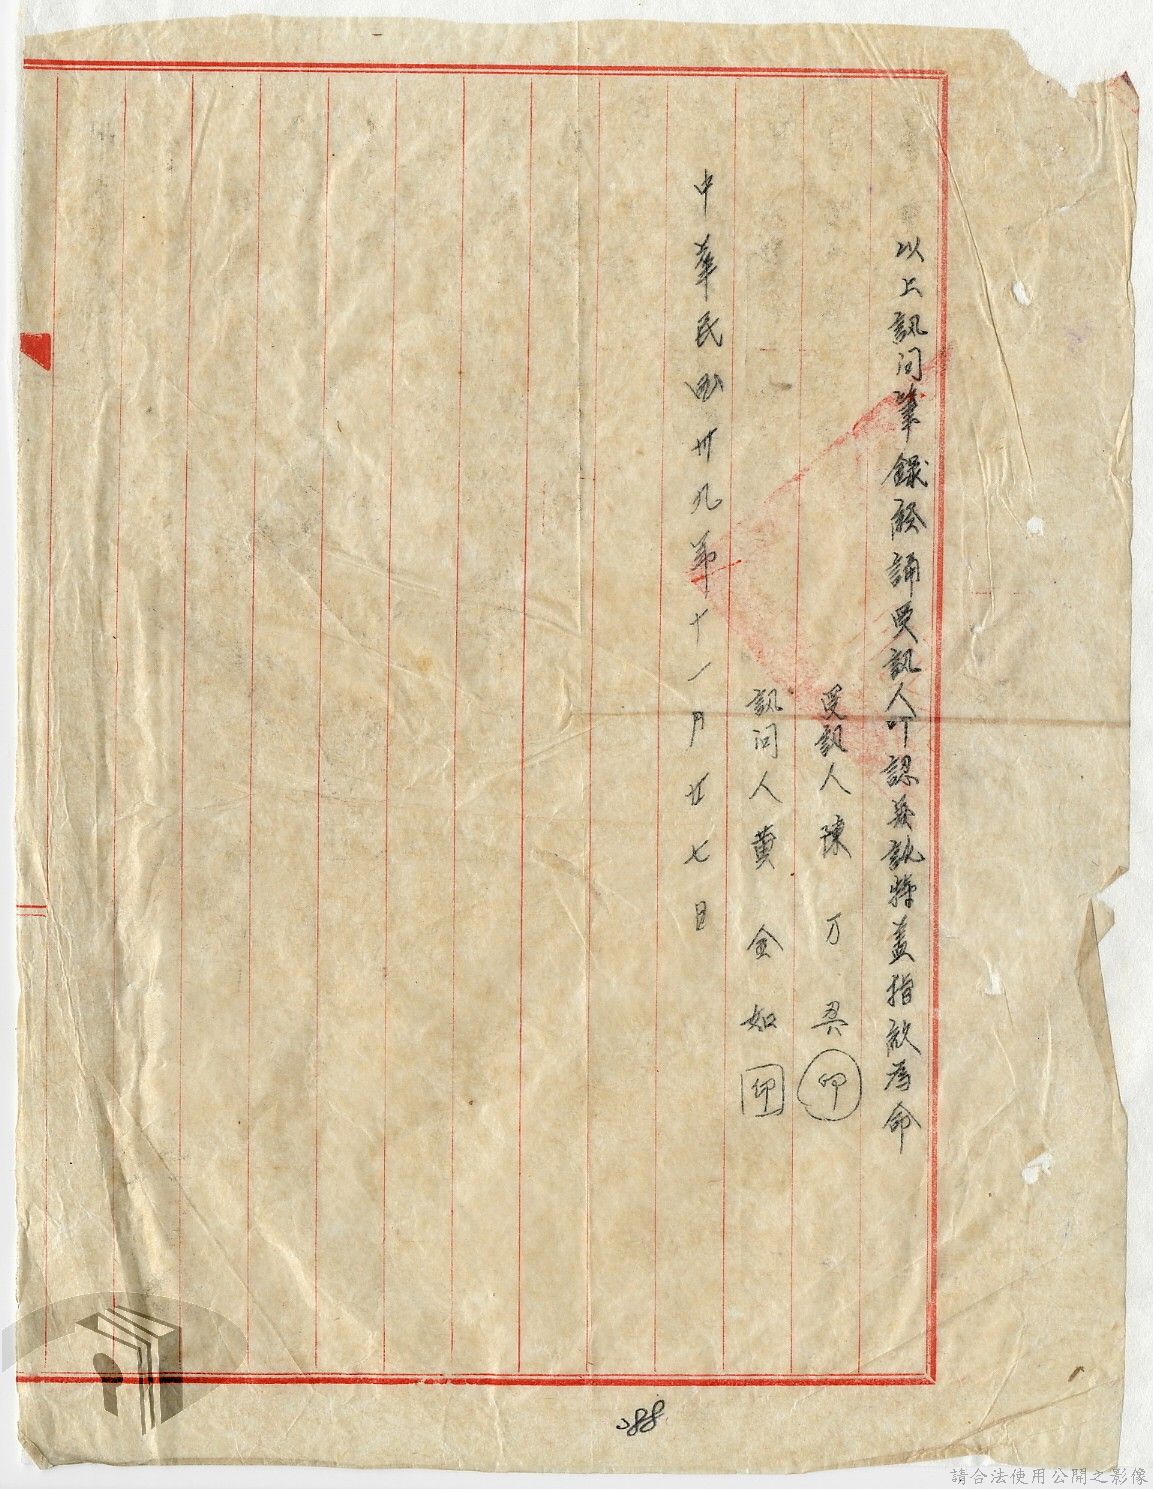 以上訊问筆錄經誦受訊人叩認無訛特蓋指紋為命
受訊人陳万
訊问人黄金如印
中華民國卅九年十一月廿七日
印
088
請合法使用公開之影像